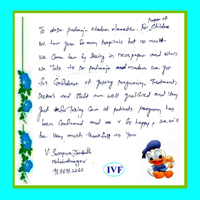 Purpose of
To dear padmaja Madam Namaste. For Children
we have gone so many hospitals but no result
we Came here by seeing in newspaper and videos
we Talk to Dr. padmaja madam we got
the Confidence of getting pregnancy. Treatment,
Doctors and staff are well qualified and very
good Taking Care of patients. pregnancy has
been Confirmed and we so happy, we will
be very much thankfull to you
V.
IVF